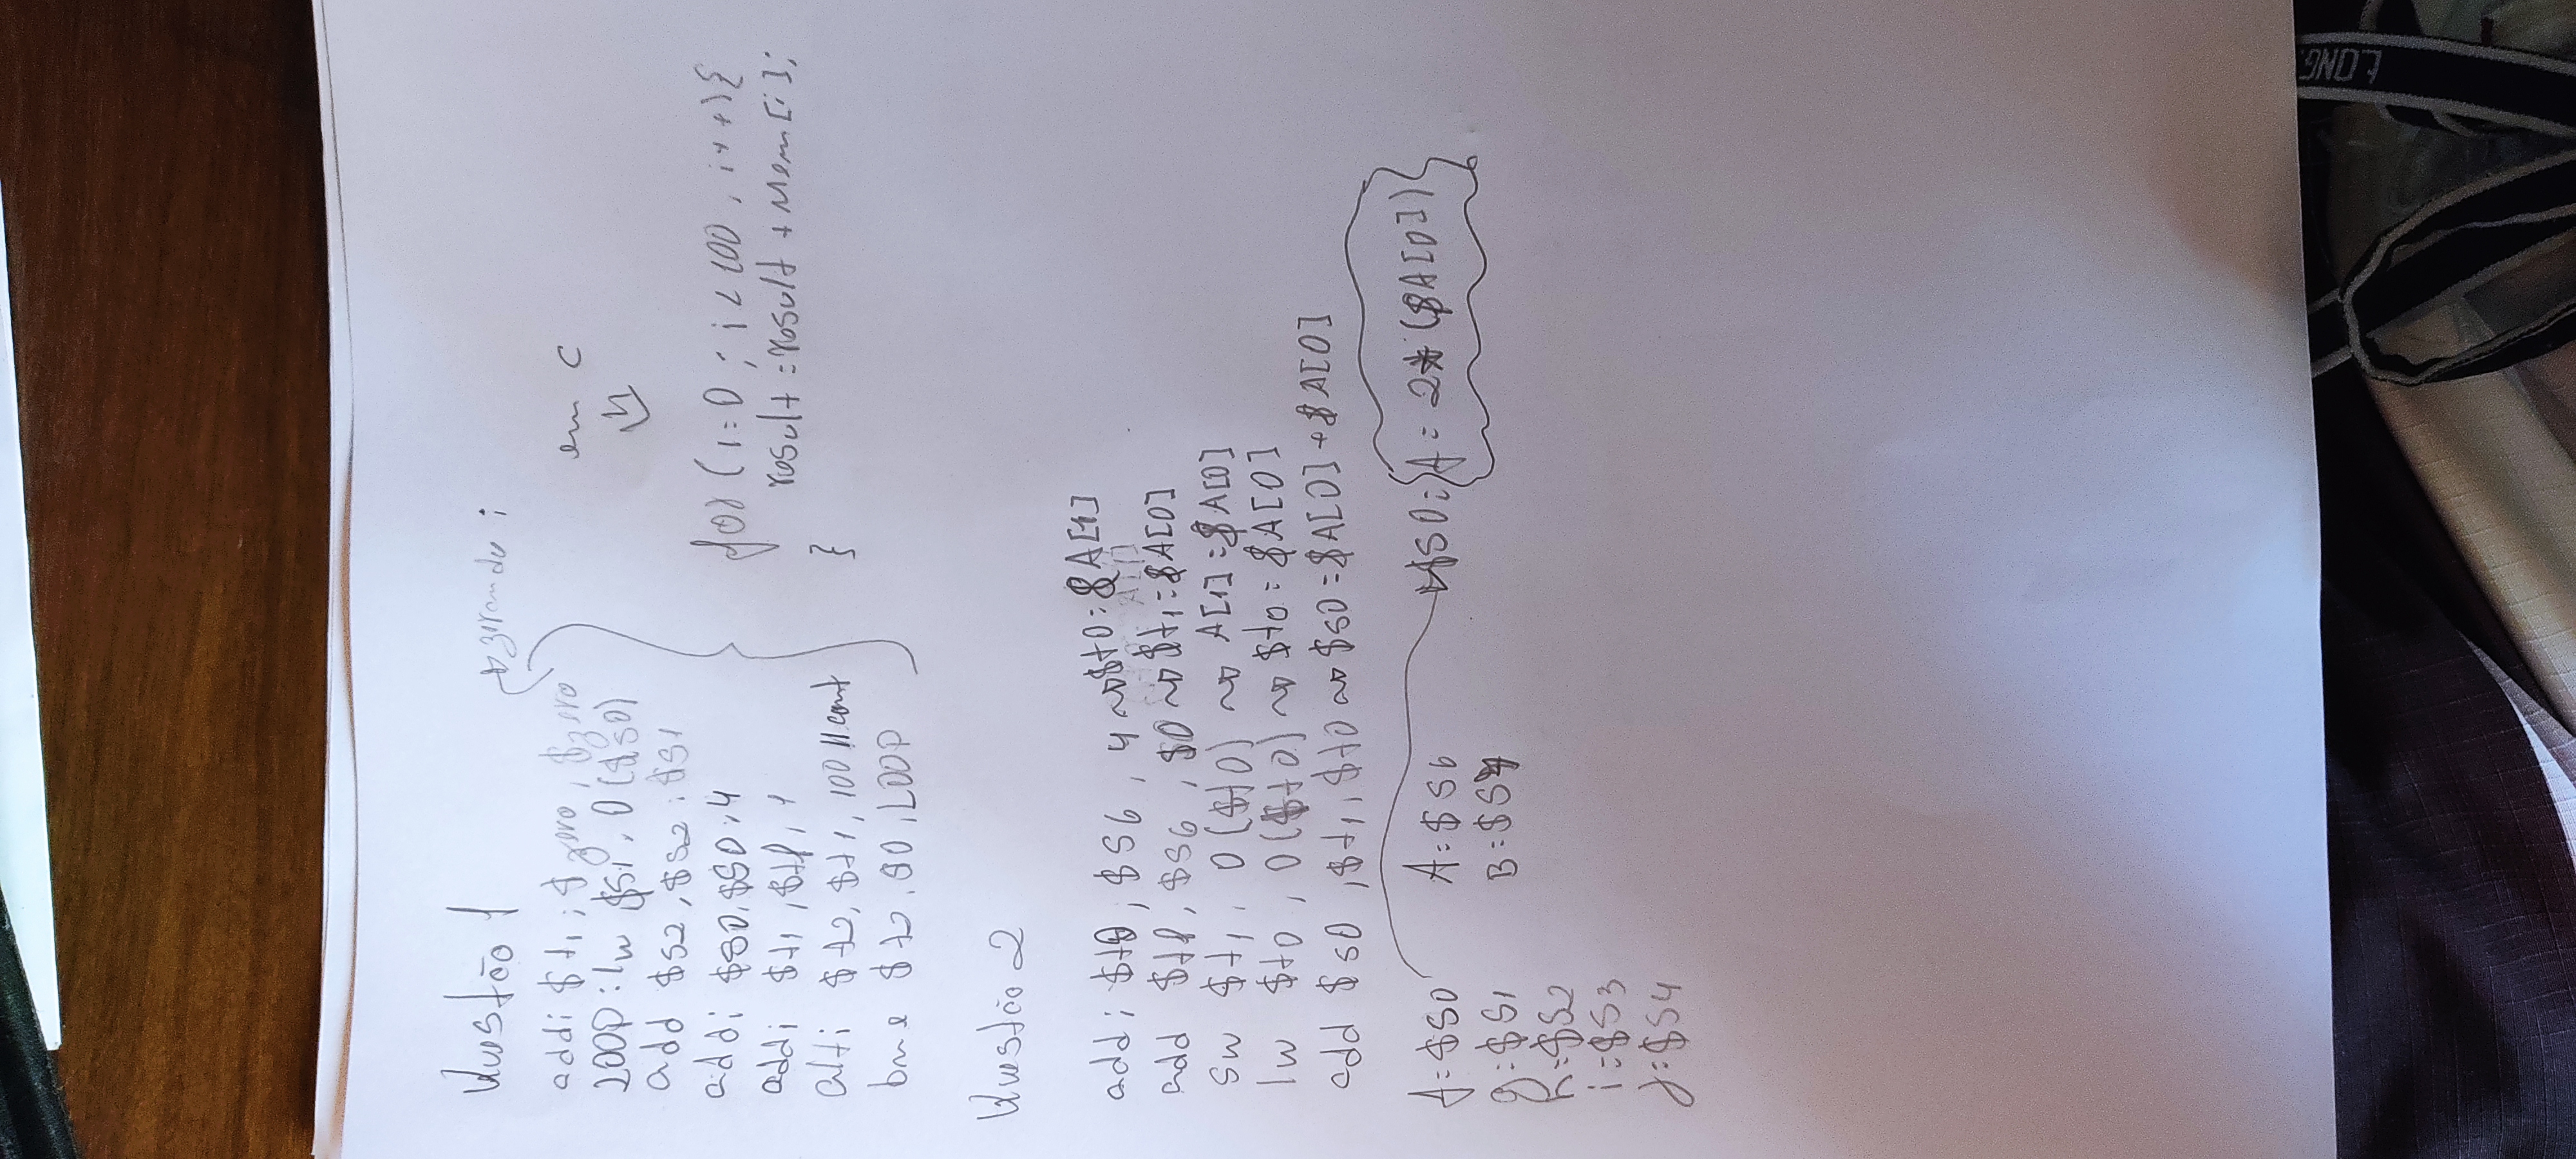 Questão 1
addi $t1, $zero, $zero
zerando i
LOOP: lw $s1, 0($s0)
add $s2, $s2, $s1
addi $s0, $s0, 4
addi $t1, $t1, 1
slti $t2, $t1, 100
bne $t2, $0, LOOP
em C
for (i=0; i<100, i++){
result = result + Mem[i];
}
Questão 2
addi $t0, $s6, 4 → $t0: &A[1]
add $t1, $s6, $0 → $t1: &A[0]
sw $t1, 0($t0) → A[1]: &A[0]
lw $t0, 0($t0) → $t0: &A[0]
add $s0, $t1, $t0 → $s0: &A[0] + &A[0]
f: $s0 A: $s6
g: $s1 B: $s7
h: $s2
i: $s3
j: $s4
$s0: f = 2*(&A[0])
LONG